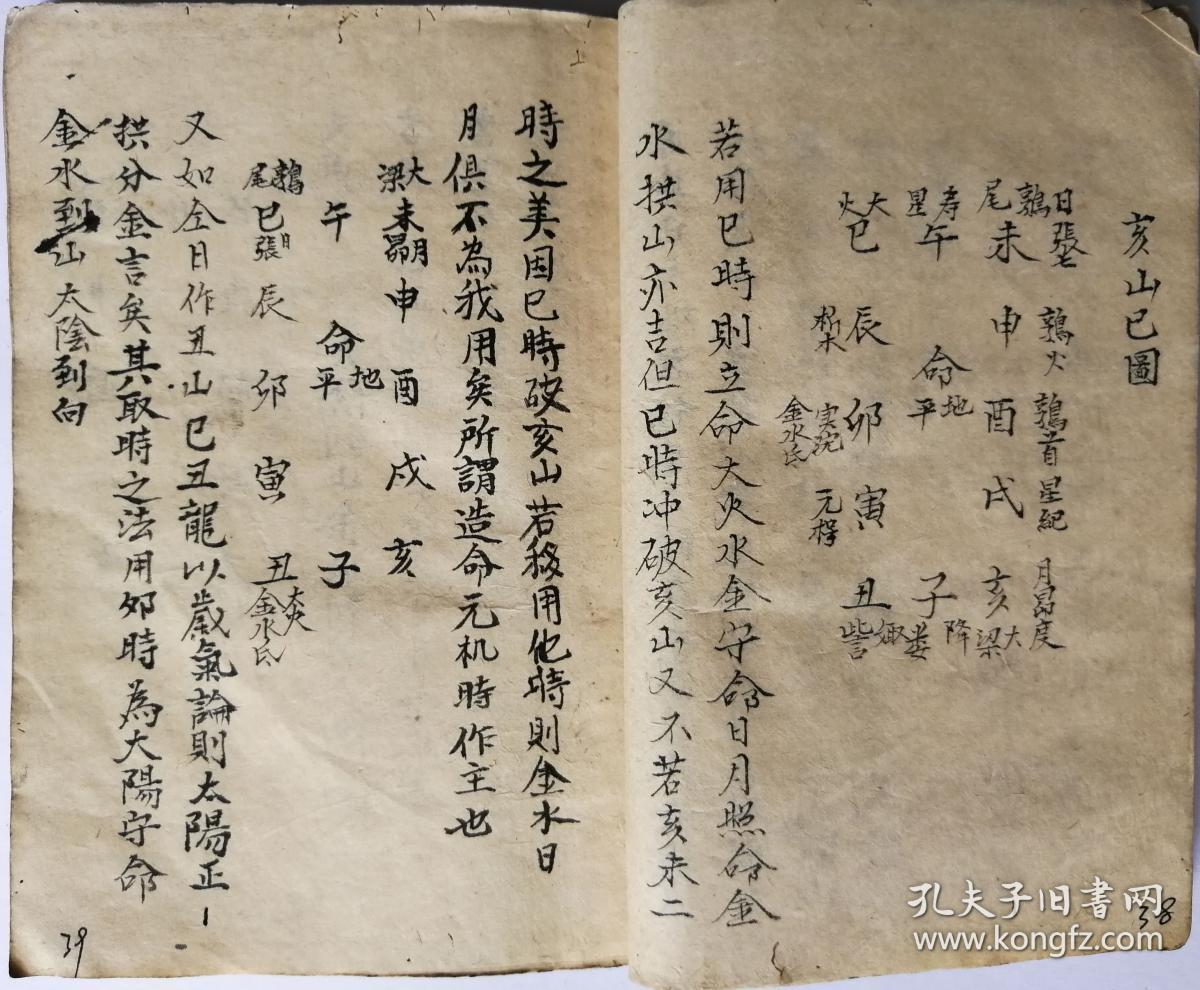 亥山巳圖
日張七 鶉火 鶉首 星紀 月昴度
鶉尾 未 申 酉 戌 亥 大梁
寿星 午 命 地平 子 降娄
大火 巳 辰 卯 寅 丑 娵訾
析木 实沈 元枵
金水氐
若用巳時則立命大火水金守命日月照命金
水拱山亦吉但巳時冲破亥山又不若亥未二
38
時之美因巳時破亥山若移用他時則金水日
月俱不為我用矣所謂造命元机時作主也
大梁 未 月昴 申 酉 戌 亥
午 命 地平 子
鶉尾 巳 日張 辰 卯 寅 丑 大火 金水氐
又如全日作丑山巳丑龍以歲氣論則太陽正
拱分金言矣其取時之法用卯時為大陽守命
金水到山太陰到向
39
孔夫子旧书网
www.kongfz.com